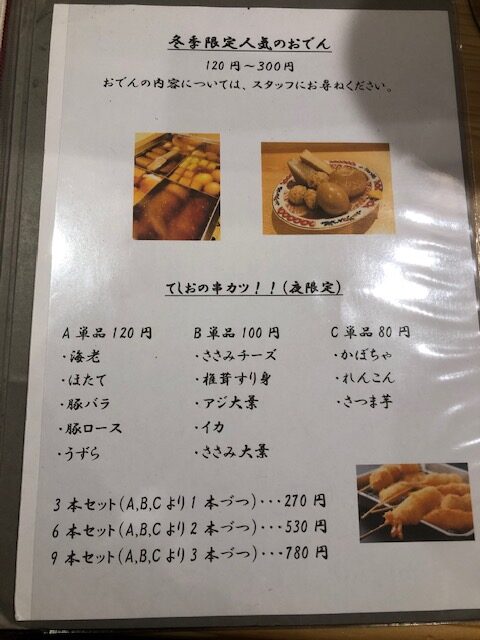 冬季限定人気のおでん
120円～300円
おでんの内容については、スタッフにお尋ねください。
てしおの串カツ！！(夜限定)
A 単品120円
・海老
・ほたて
・豚バラ
・豚ロース
・うずら
B 単品100円
・ささみチーズ
・椎茸すり身
・アジ大葉
・イカ
・ささみ大葉
C 単品80円
・かぼちゃ
・れんこん
・さつま芋
3本セット(A,B,Cより1本づつ)･･･270円
6本セット(A,B,Cより2本づつ)･･･530円
9本セット(A,B,Cより3本づつ)･･･780円